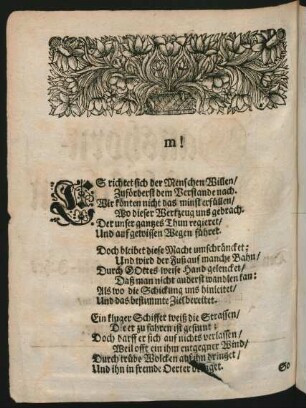 m!
ES richtet sich der Menschen Willen/
Zuförderst dem Verstande nach.
Wir könten nicht das minst erfüllen/
Wo dieser Werkzeug uns gebrach.
Der unser ganzes Thun regieret/
Und auf gewissen Wegen führet.
Doch bleibet diese Macht umschräncket;
Und wird der Fuß auf manche Bahn/
Durch GOttes weise Hand gelencket/
Daß man nicht anderst wandlen kan:
Als wo die Schickung uns hinleitet/
Und das bestimmte Ziel bereitet.
Ein kluger Schiffer weiß die Strassen/
Die er zu fahren ist gesinnt:
Doch darff er sich auf nichts verlassen/
Weil offt ein ihm entgegner Wind/
Durch trübe Wolcken auf ihn dringet/
Und ihn in fremde Oerter bringet.
So